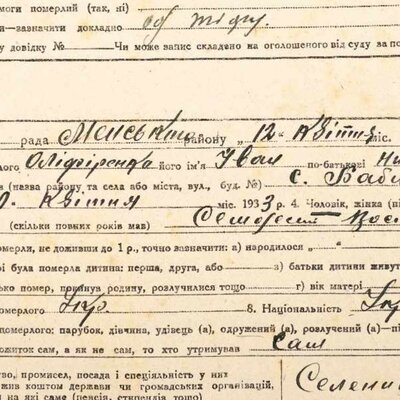 моги померлий (так, ні)
и—зазначити докладно від тифу.
у довідку № Чи може запис складено на оголошеного від суду за по
рада Менський району „ 12 " Квітня міс.
лого Оліфіренко його ім'я Іван по-батькові
в (назва району та села або міста, вул., буд. №) с. Баби
Квітня міс. 1933 р. 4. Чоловік, жінка (пі
(скільки повних років мав) Семдесят
омерли, не доживши до 1 р., точно зазначити: а) народилося „
і була померла дитина: перша, друга, або б) батьки дитини живут
ько помер, покинув родину, розлучилися тощо г) вік матері
омерлого Укр. 8. Національність Укр
померлого: парубок, дівчина, удівець (а), одружений (а), розлучений (а)—пі
ожиток сам, а як не сам, то хто утримував сам
во, промисел, посада і спеціяльність у них
жив коштом держави чи громадських організацій,
и на які саме (пенсія, стипендія тощо) Селенин